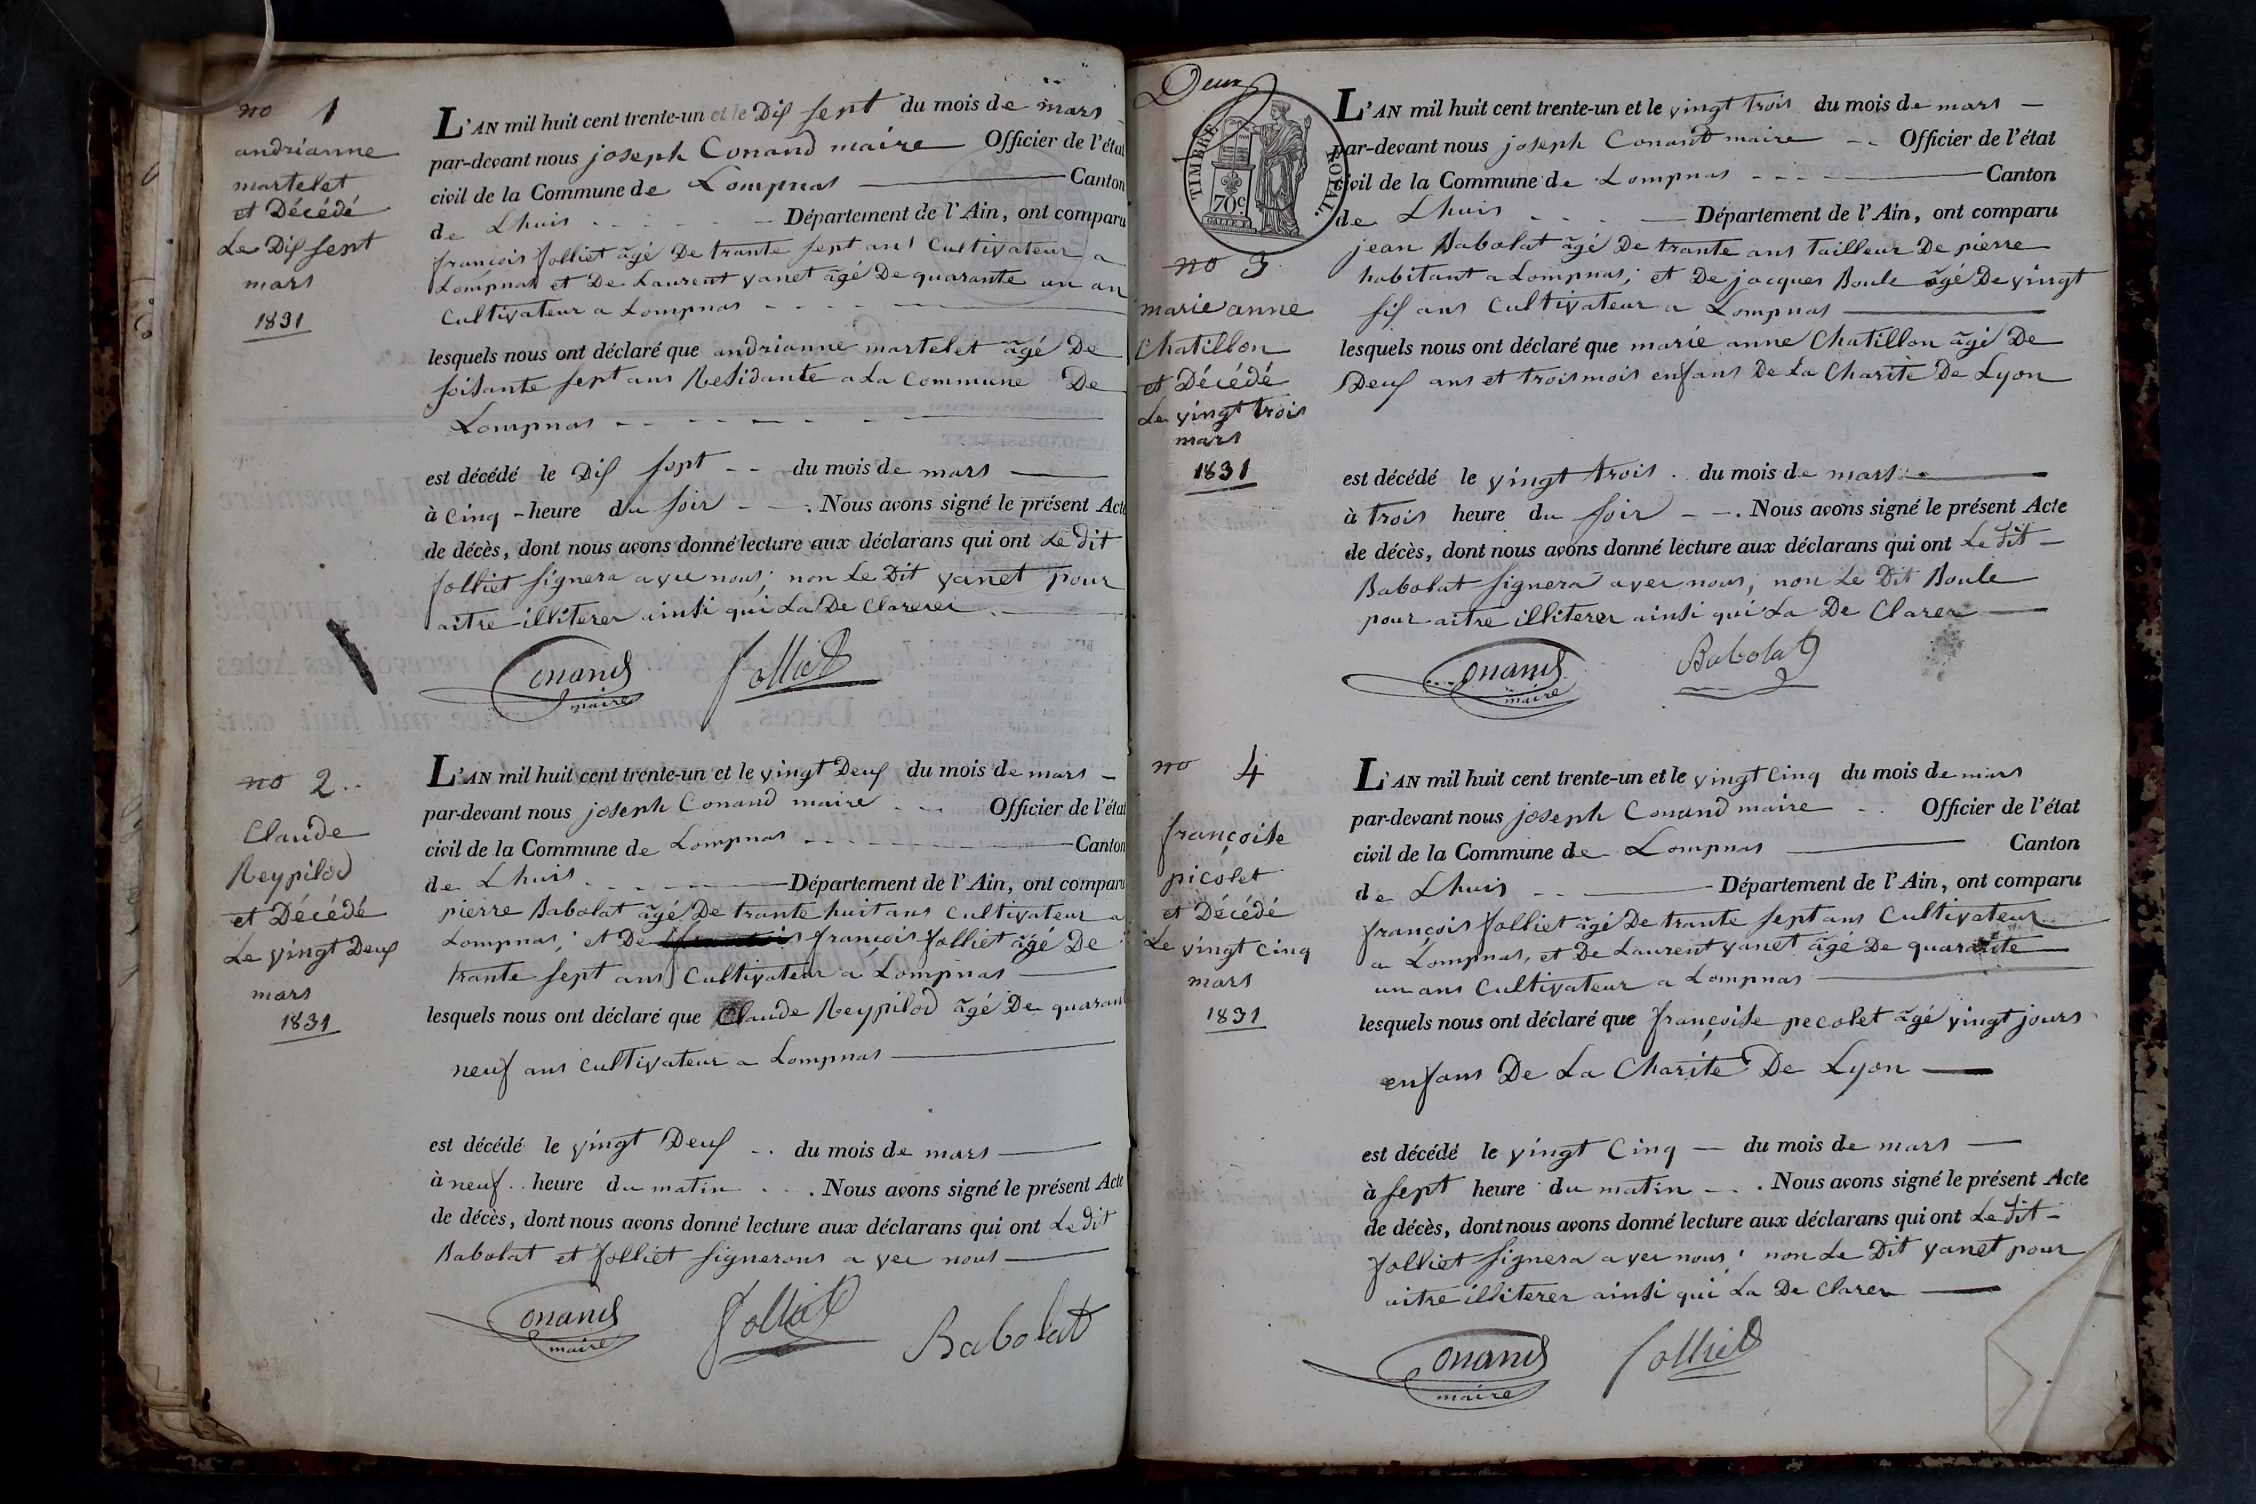 no 1
andrianne
martelet
et Décédé
Le Dis sept
mars
1831
L'AN mil huit cent trente-un et le Dis sept du mois de mars
par-devant nous joseph Conand maire Officier de l'état
civil de la Commune de Lompnas Canton
de Lhuis Département de l'Ain, ont comparu
françois folliet âgé De trante sept ans Cultivateur a
Lompnas et De Laurent vanet âgé De quarante un an
Cultivateur a Lompnas
lesquels nous ont déclaré que andrianne martelet âgé De
soisante sept ans Residante a La Commune De
Lompnas
est décédé le Dis sept du mois de mars
à Cinq heure du soir . Nous avons signé le présent Acte
de décès, dont nous avons donné lecture aux déclarans qui ont Le dit
folliet signera avec nous; non Le Dit vanet pour
aitre illiterer ainsi qui La De Clarerer
Conand folliet
maire
no 2
Claude
Reypilod
et Décédé
Le vingt Deus
mars
1831
L'AN mil huit cent trente-un et le vingt Deus du mois de mars
par-devant nous joseph Conand maire Officier de l'état
civil de la Commune de Lompnas Canton
de Lhuis Département de l'Ain, ont comparu
pierre Babolat âgé De trante huit ans Cultivateur a
Lompnas; et De françois folliet âgé De
trante sept ans Cultivateur a Lompnas
lesquels nous ont déclaré que Claude Reypilod âgé De quarant
neuf ans Cultivateur a Lompnas
est décédé le vingt Deus du mois de mars
à neuf heure du matin . Nous avons signé le présent Acte
de décès, dont nous avons donné lecture aux déclarans qui ont Le dit
Babolat et folliet signerons a vec nous
Conand folliet Babolat
maire
Deux
TIMBRE ROYAL.
70c
no 3
marie anne
Chatillon
et Décédé
Le vingt trois
mars
1831
L'AN mil huit cent trente-un et le vingt trois du mois de mars
par-devant nous joseph Conand maire Officier de l'état
civil de la Commune de Lompnas Canton
de Lhuis Département de l'Ain, ont comparu
jean Babolat âgé De trante ans tailleur De pierre
habitant a Lompnas; et De jacques Boule âgé De vingt
sis ans Cultivateur a Lompnas
lesquels nous ont déclaré que marie anne Chatillon âgé De
Deus ans et trois mois enfans De La Charité De Lyon
est décédé le vingt trois du mois de mars
à trois heure du soir . Nous avons signé le présent Acte
de décès, dont nous avons donné lecture aux déclarans qui ont Le dit
Babolat signera avec nous; non Le Dit Boule
pour aitre illiterer ainsi qui La De Clarer
Conand Babolat
maire
no 4
françoise
picolet
et Décédé
Le vingt Cinq
mars
1831
L'AN mil huit cent trente-un et le vingt Cinq du mois de mars
par-devant nous joseph Conand maire Officier de l'état
civil de la Commune de Lompnas Canton
de Lhuis Département de l'Ain, ont comparu
françois folliet âgé De trante sept ans Cultivateur
a Lompnas, et De Laurent vanet âgé De quarante
un ans Cultivateur a Lompnas
lesquels nous ont déclaré que françoise pecolet âgé vingt jours
enfans De La Charité De Lyon
est décédé le vingt Cinq du mois de mars
à sept heure du matin . Nous avons signé le présent Acte
de décès, dont nous avons donné lecture aux déclarans qui ont Le dit
folliet signera avec nous; non Le Dit vanet pour
aitre illiterer ainsi qui La De Clarer
Conand folliet
maire